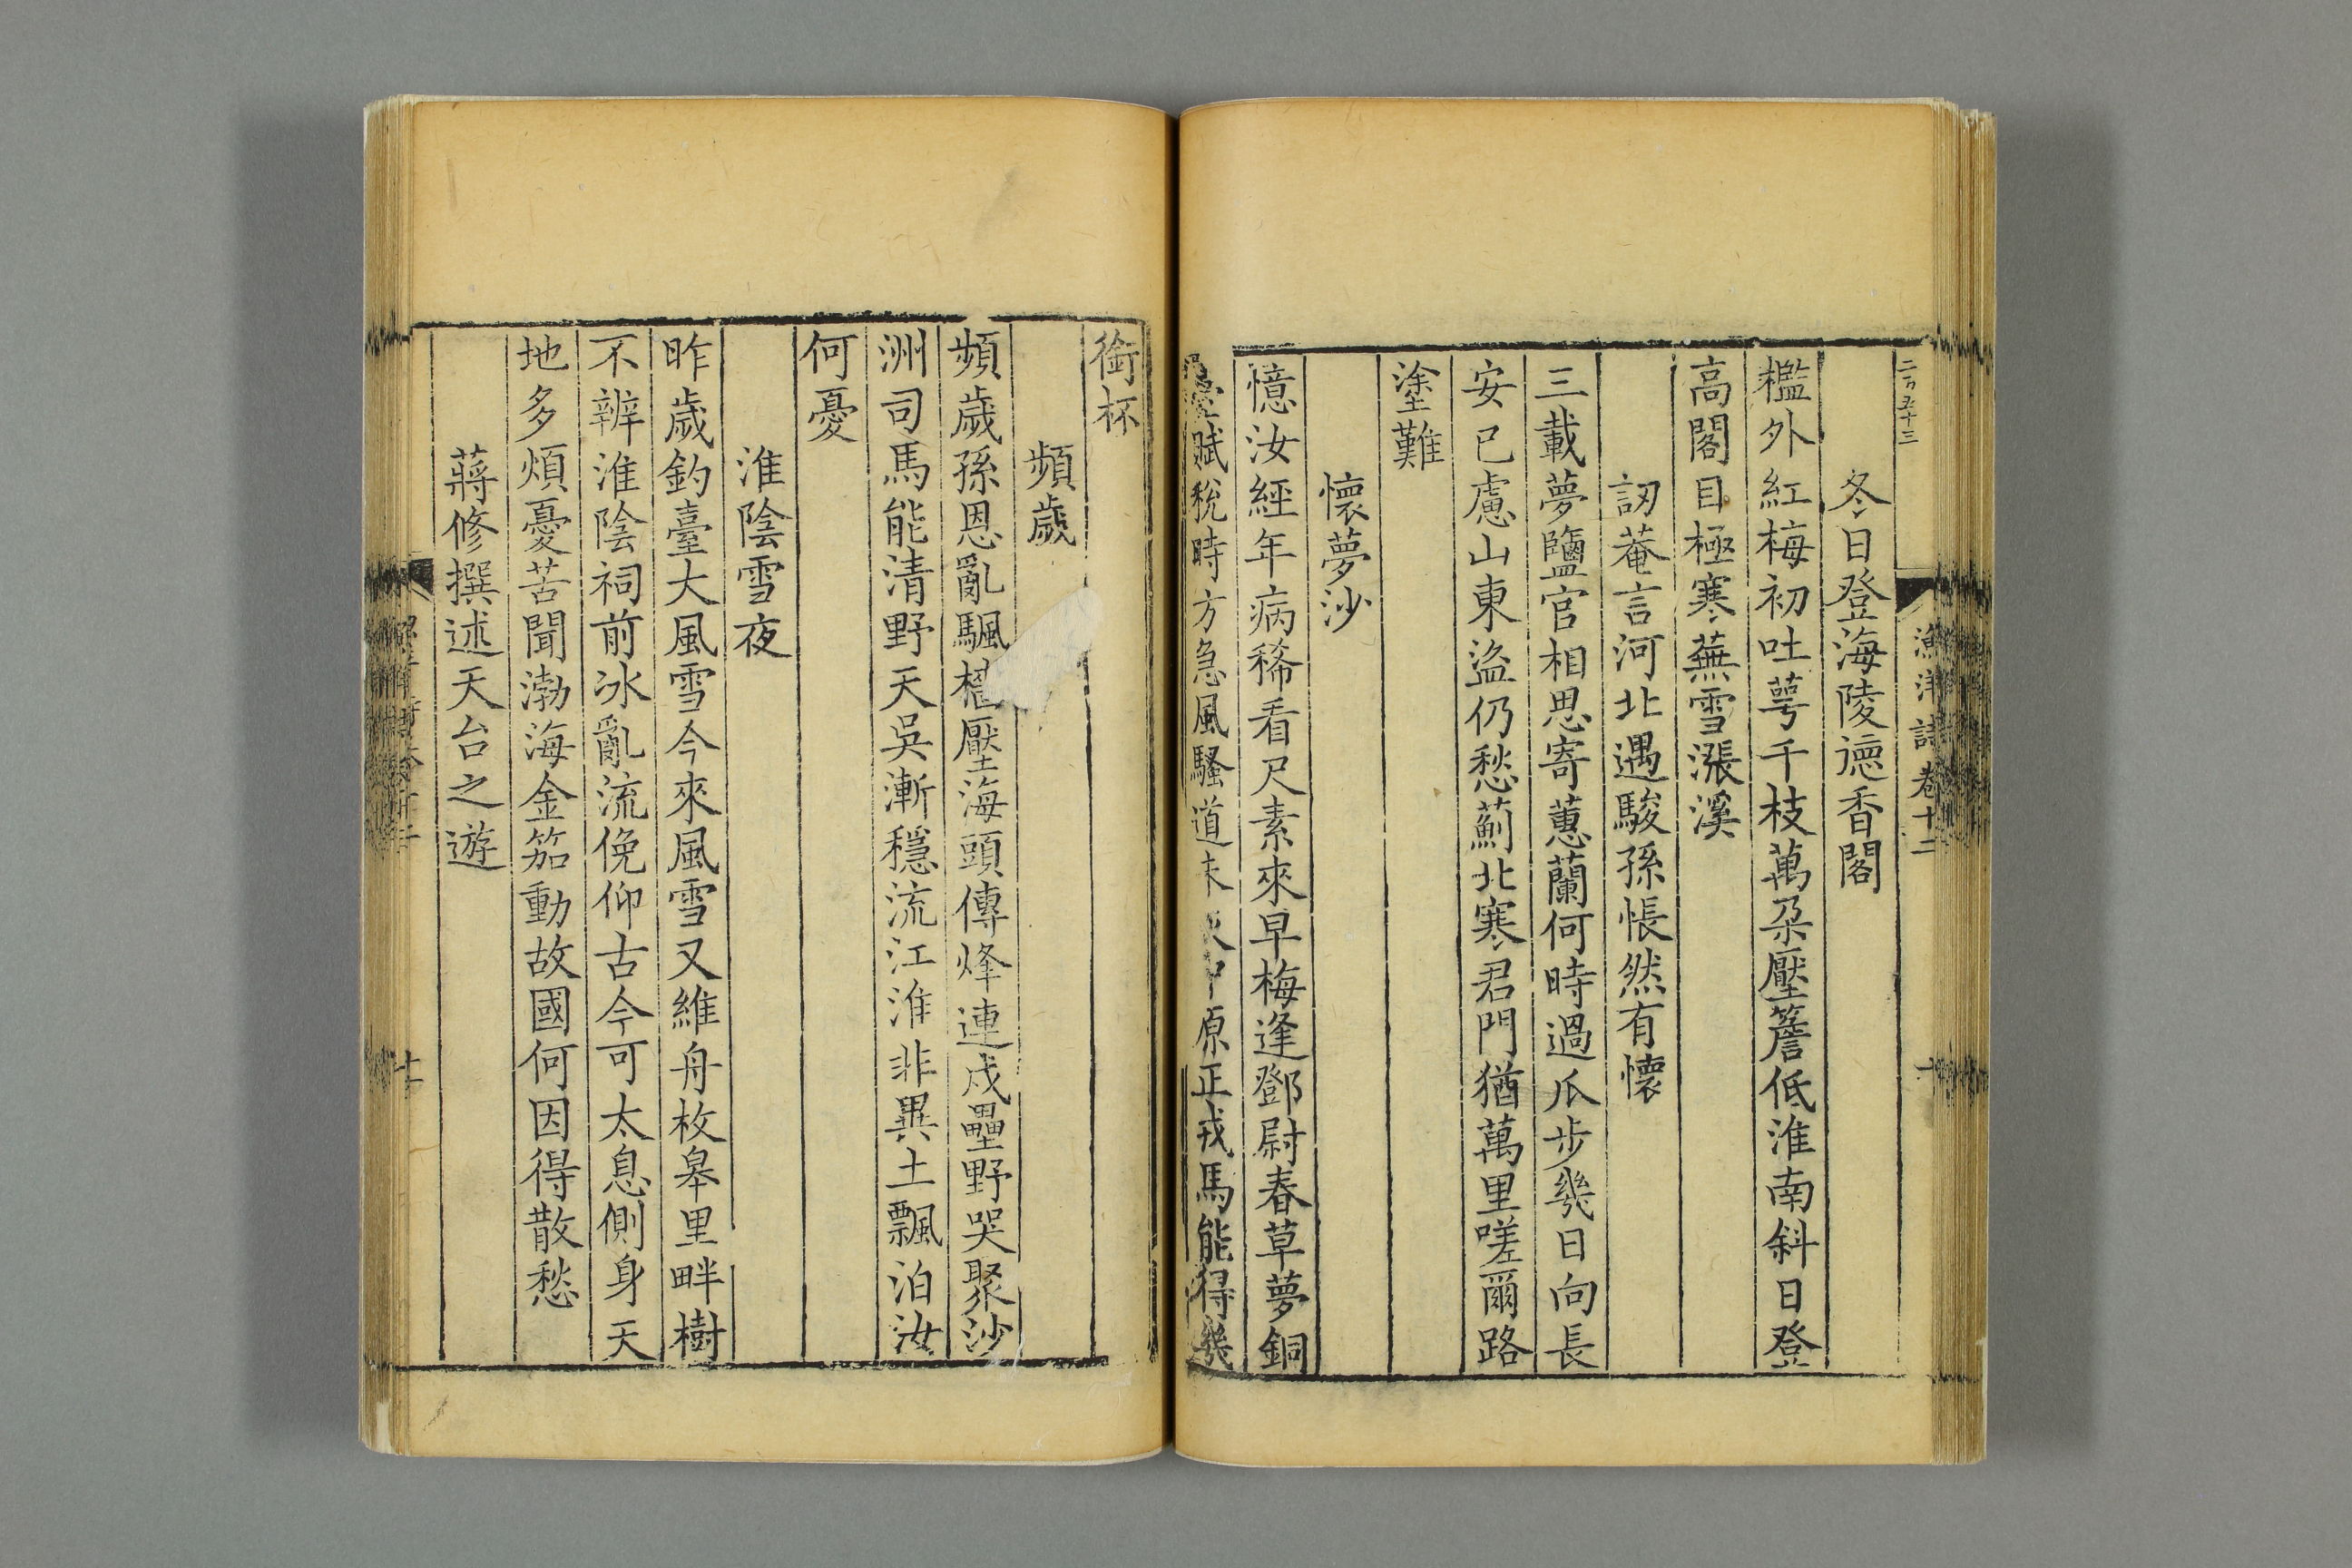 二百五十三
漁洋詩卷十二
冬日登海陵德香閣
檻外紅梅初吐萼千枝萬朵壓簷低淮南斜日登
高閣目極寒蕪雪漲溪
訒菴言河北遇駿孫悵然有懷
三載夢鹽官相思寄蕙蘭何時過瓜步幾日向長
安已慮山東盜仍愁薊北寒君門猶萬里嗟爾路
塗難
懷夢沙
憶汝經年病稀看尺素來早梅逢鄧尉春草夢銅
臺賦稅時方急風騷道未 中原正戎馬能得幾
銜杯
頻歲
頻歲孫恩亂颿檣壓海頭傳烽連戍壘野哭聚沙
洲司馬能清野天吳漸穩流江淮非異土飄泊汝
何憂
淮陰雪夜
昨歲釣臺大風雪今來風雪又維舟枚皋里畔樹
不辨淮陰祠前冰亂流俛仰古今可太息側身天
地多煩憂苦聞渤海金笳動故國何因得散愁
蔣修撰述天台之遊